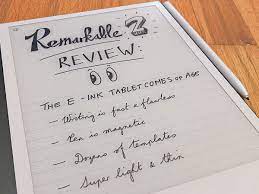 Remarkable 2
REVIEW:
THE E-INK TABLET COMES OF AGE
- Writing is fast & flawless
- Pen is magnetic
- Dozens of templates
- Super light & thin